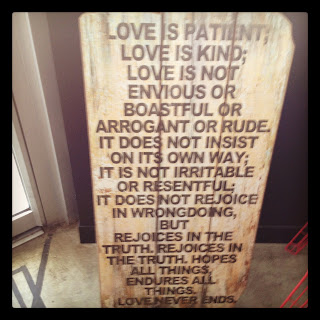 LOVE IS PATIENT;
LOVE IS KIND;
LOVE IS NOT
ENVIOUS OR
BOASTFUL OR
ARROGANT OR RUDE.
IT DOES NOT INSIST
ON ITS OWN WAY;
IT IS NOT IRRITABLE
OR RESENTFUL;
IT DOES NOT REJOICE
IN WRONGDOING,
BUT
REJOICES IN THE
TRUTH. REJOICES IN
THE TRUTH. HOPES
ALL THINGS,
ENDURES ALL
THINGS.
LOVE NEVER ENDS.